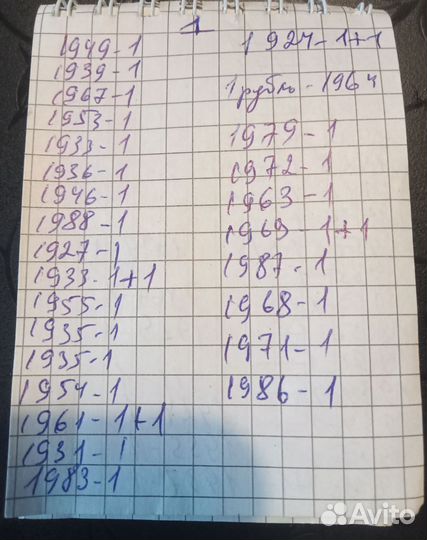 1
1949-1
1939-1
1967-1
1953-1
1933-1
1936-1
1946-1
1988-1
1927-1
1933-1+1
1955-1
1935-1
1935-1
1954-1
1961-1+1
1931-1
1983-1
1924-1+1
1 рубль-1964
1979-1
1972-1
1963-1
1969-1+1
1987-1
1968-1
1971-1
1986-1
Avito